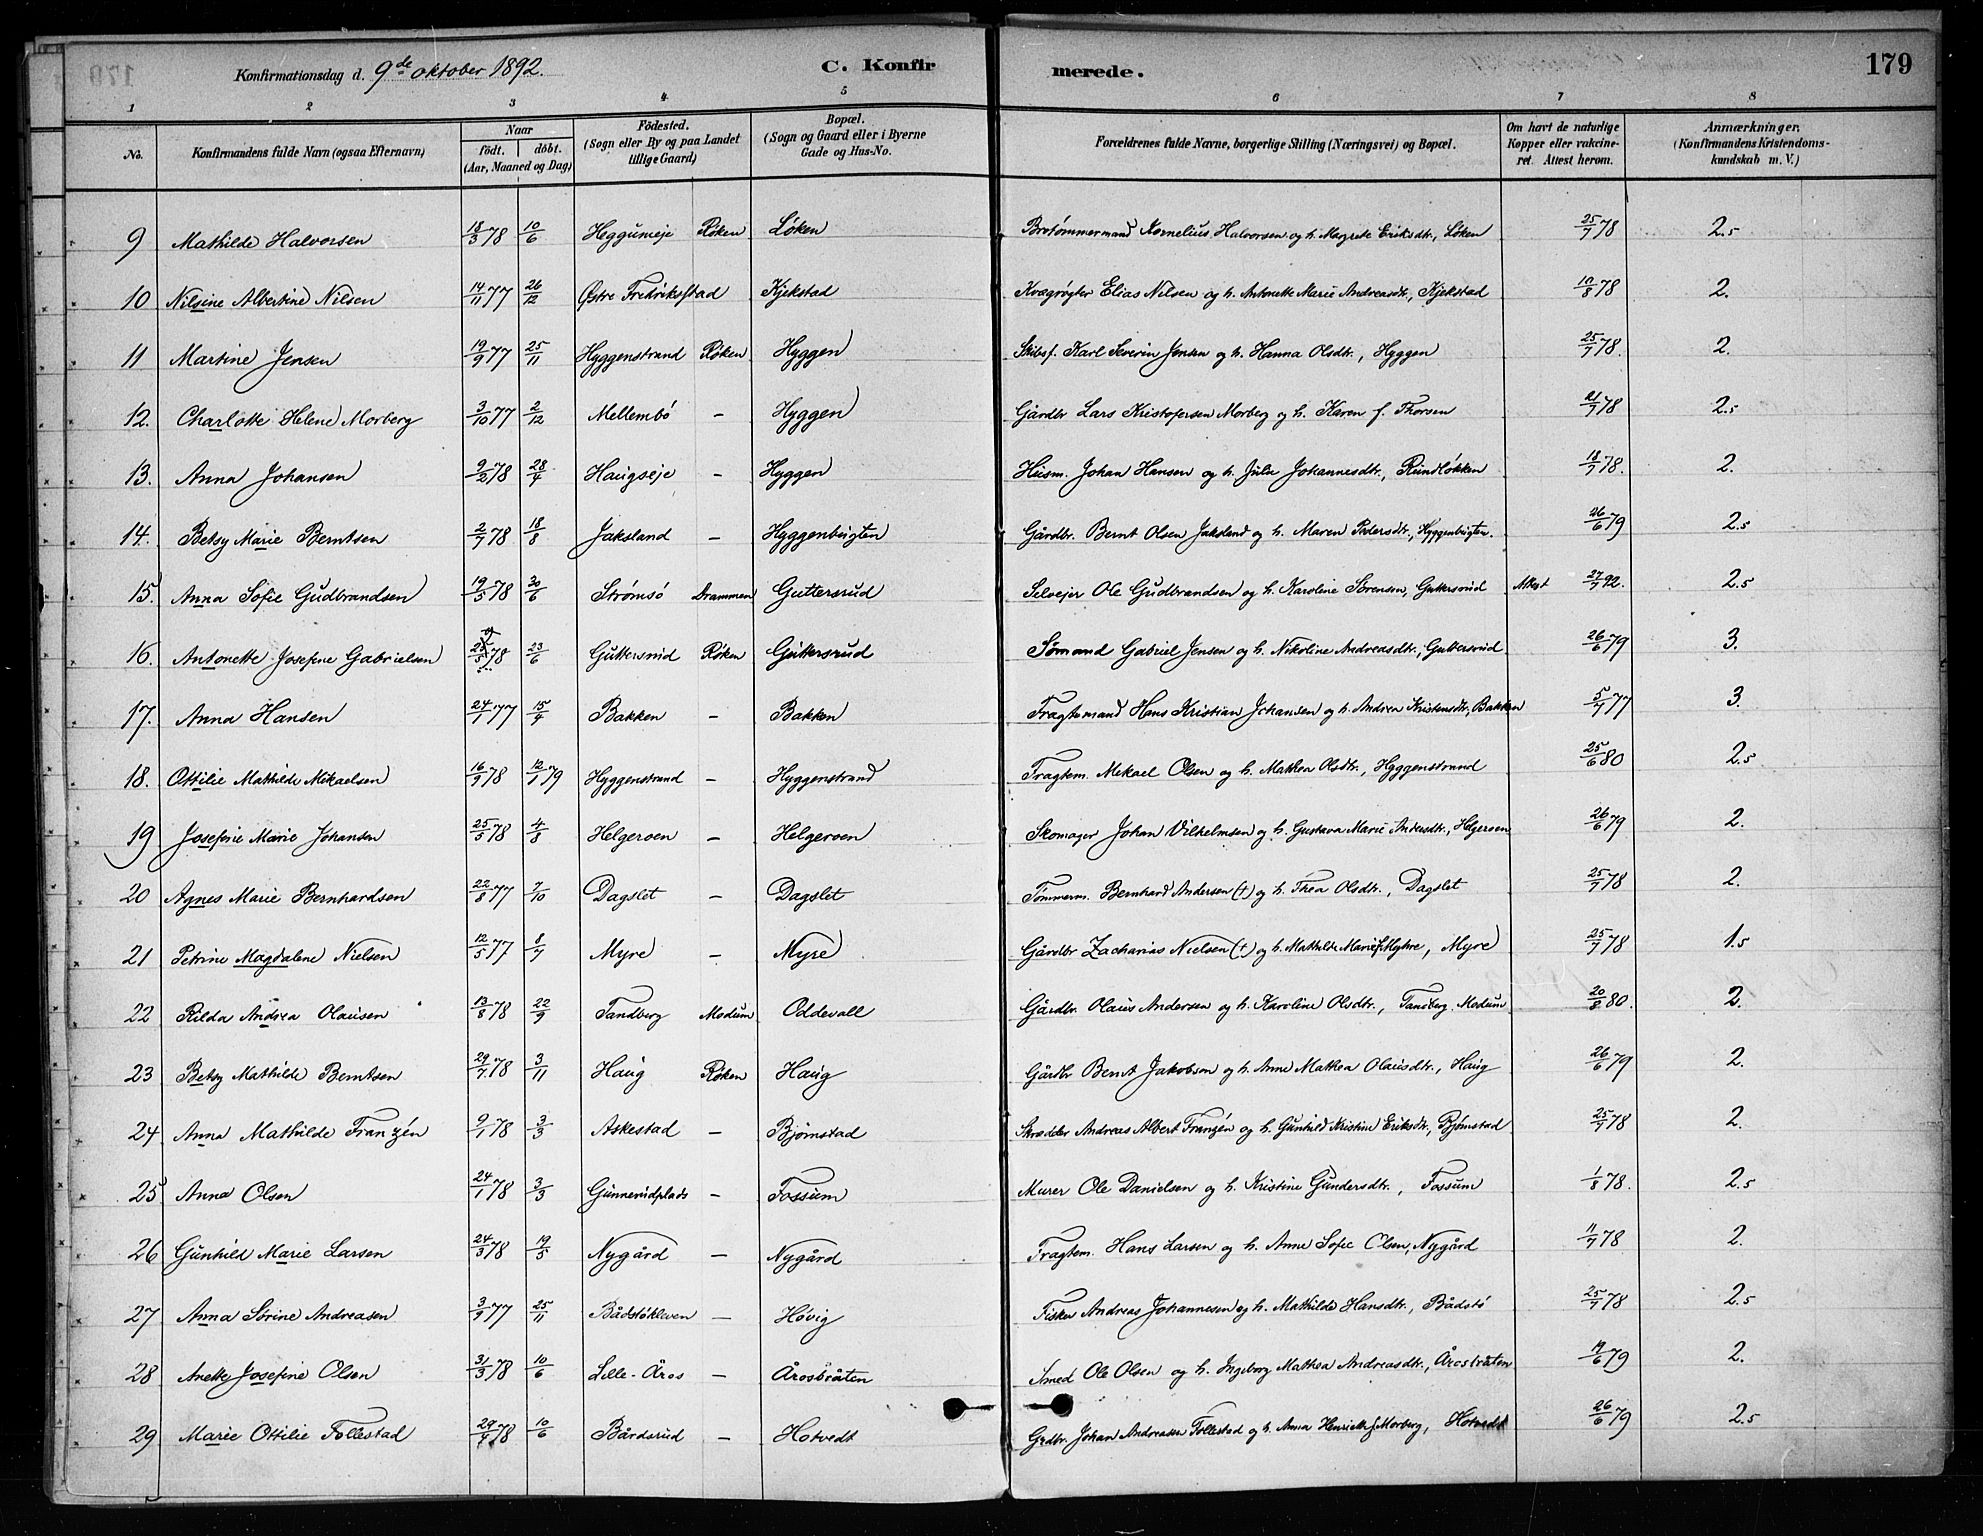 Konfirmationsdag d. 9de oktober 1892. C. Konfirmerede. 179
1 2 3 4 5 6 7 8
No. Konfirmandens fulde Navn (ogsaa Efternavn) Naar født. døbt. (Aar, Maaned og Dag) Födested. (Sogn eller By og paa Landet tillige Gaard) Bopæl. (Sogn og Gaard eller i Byerne Gade og Hus-No. Forældrenes fulde Navne, borgerlige Stilling (Næringsvei) og Bopæl. Om havt de naturlige Kopper eller vakcineret. Attest herom. Anmærkninger. (Konfirmandens Kristendomskundskab m. V.)
9 Mathilde Halvorsen 18/3 78 10/6 Heggumeje Røken Løken Brotømmermand Kornelius Halvorsen og h. Magrete Eriksdtr., Løken 25/7 78 2.5
10 Nilsine Albertine Nilsen 14/11 77 26/12 Østre Fredrikstad Kjekstad Kvægrøgter Elias Nilsen og h. Antonette Marie Andreasdtr., Kjekstad 10/8 78 2.
11 Martine Jensen 19/9 77 25/11 Hyggenstrand Røken Hyggen Skibsf. Karl Severin Jensen og h. Hanna Olsdtr., Hyggen 25/7 78. 2.
12. Charlotte Helene Morberg 3/10 77 2/12 Mellembö – Hyggen Gårdbr Lars Kristofersen Morberg og h. Karen f. Thorsen /7 78 2.5
13. Anna Johansen 9/2 78 28/4 Haugseje – Hyggen Husm. Johan Hansen og h. Jule Johannesdtr., Rundløkken 18/7 78. 2.
14. Betsy Marie Berntsen 2/7 78 18/8 Jaksland – Hyggenbugten Gårdbr. Bernt Olsen Jaksland og h. Maren Pedersdtr., Hyggenbugten. 26/6 79 2.5
15. Anna Sofie Gudbrandsen 19/5 78 30/6 Strømsö Drammen Guttersrud Selvejer Ole Gudbrandsen og h. Karoline Sörensen, Guttersrud Attest 27/7 92. 2.5
16. Antonette Josefine Gabrielsen /5 78 23/6 Guttersrud Røken Guttersrud Sømand Gabriel Jensen og h. Nikoline Andreasdtr., Guttersrud 26/6 79 3.
17. Anna Hansen 24/1 77 15/4 Bakken – Bakken Fragtemand Hans Kristian Johansen og h. Andrea Kristensdtr., Bakken 5/7 77 3.
18. Ottilie Mathilde Mikaelsen 16/9 78 12/1 79 Hyggenstrand – Hyggenstrand Fragtem. Mekael Olsen og h. Mathea Olsdtr., Hyggenstrand 25/6 80 2.5
19 Josefine Marie Johansen 25/5 78 4/8 Helgeroen – Helgeroen Skomager Johan Vilhelmsen og h. Gustava Marie Andersdtr., Helgeroen 26/6 79 2.
20 Agnes Marie Bernhardsen 22/8 77 7/10 Dagslet – Dagslet Tömmerm. Bernhard Andersen (†) og h. Thea Olsdtr., Dagslet 25/7 78 2.
21 Petrine Magdalene Nielsen 12/5 77 8/7 Myre – Myre Gårdbr Zacharias Nielsen (†) og h. Mathilde Marie f. Myhre, Myre 25/7 78 1.5
22 Rilda Andrea Olausen 13/8 78 22/9 Tandberg Modum Oddevall Gårdbr. Olaus Andersen og h. Karoline Olsdtr., Tandberg. Modum 20/8 80. 2.
23 Betsy Mathilde Berntsen 29/7 78 3/11 Haug Røken Haug Gårdbr Bernt Jakobsen og h. Anne Mathea Olausdtr., Haug 26/6 79 2.
24 Anna Mathilde Franzén 9/1 78 3/3 Askestad – Bjørnstad Skrædder Andreas Albert Franzén og h. Gunhild Kristine Eriksdtr., Bjørnstad 25/7 78 2.
25 Anna Olsen 24/1 78 3/3 Gunnerudplads – Fossum Murer Ole Danielsen og h. Kristine Gundersdtr., Fossum 1/8 78. 2.5
26 Gunhild Marie Larsen 24/3 78 19/5 Nygård – Nygård Fragtem. Hans Larsen og h. Anne Sofie Olsen, Nygård 11/7 78 2.
27 Anna Sörine Andreasen 3/9 77 25/11 Bådstökleven – Høvig Fisker Andreas Johannesen og h. Mathilde Hansdtr., Bådstö 25/7 78 2.5
28 Anette Josefine Olsen 31/3 78 10/6 Lille-Åros – Årosbråten Smed Ole Olsen og h. Ingeborg Mathea Andreasdtr., Årosbråten /6 79 2.
29 Marie Ottilie Follestad 29/ 78 10/6 Bårdsrud – Hotvedt Grdbr. Johan Andreasen Follestad og h. Anna Henriette f. Morberg, Hotvedt 26/6 79 2.5